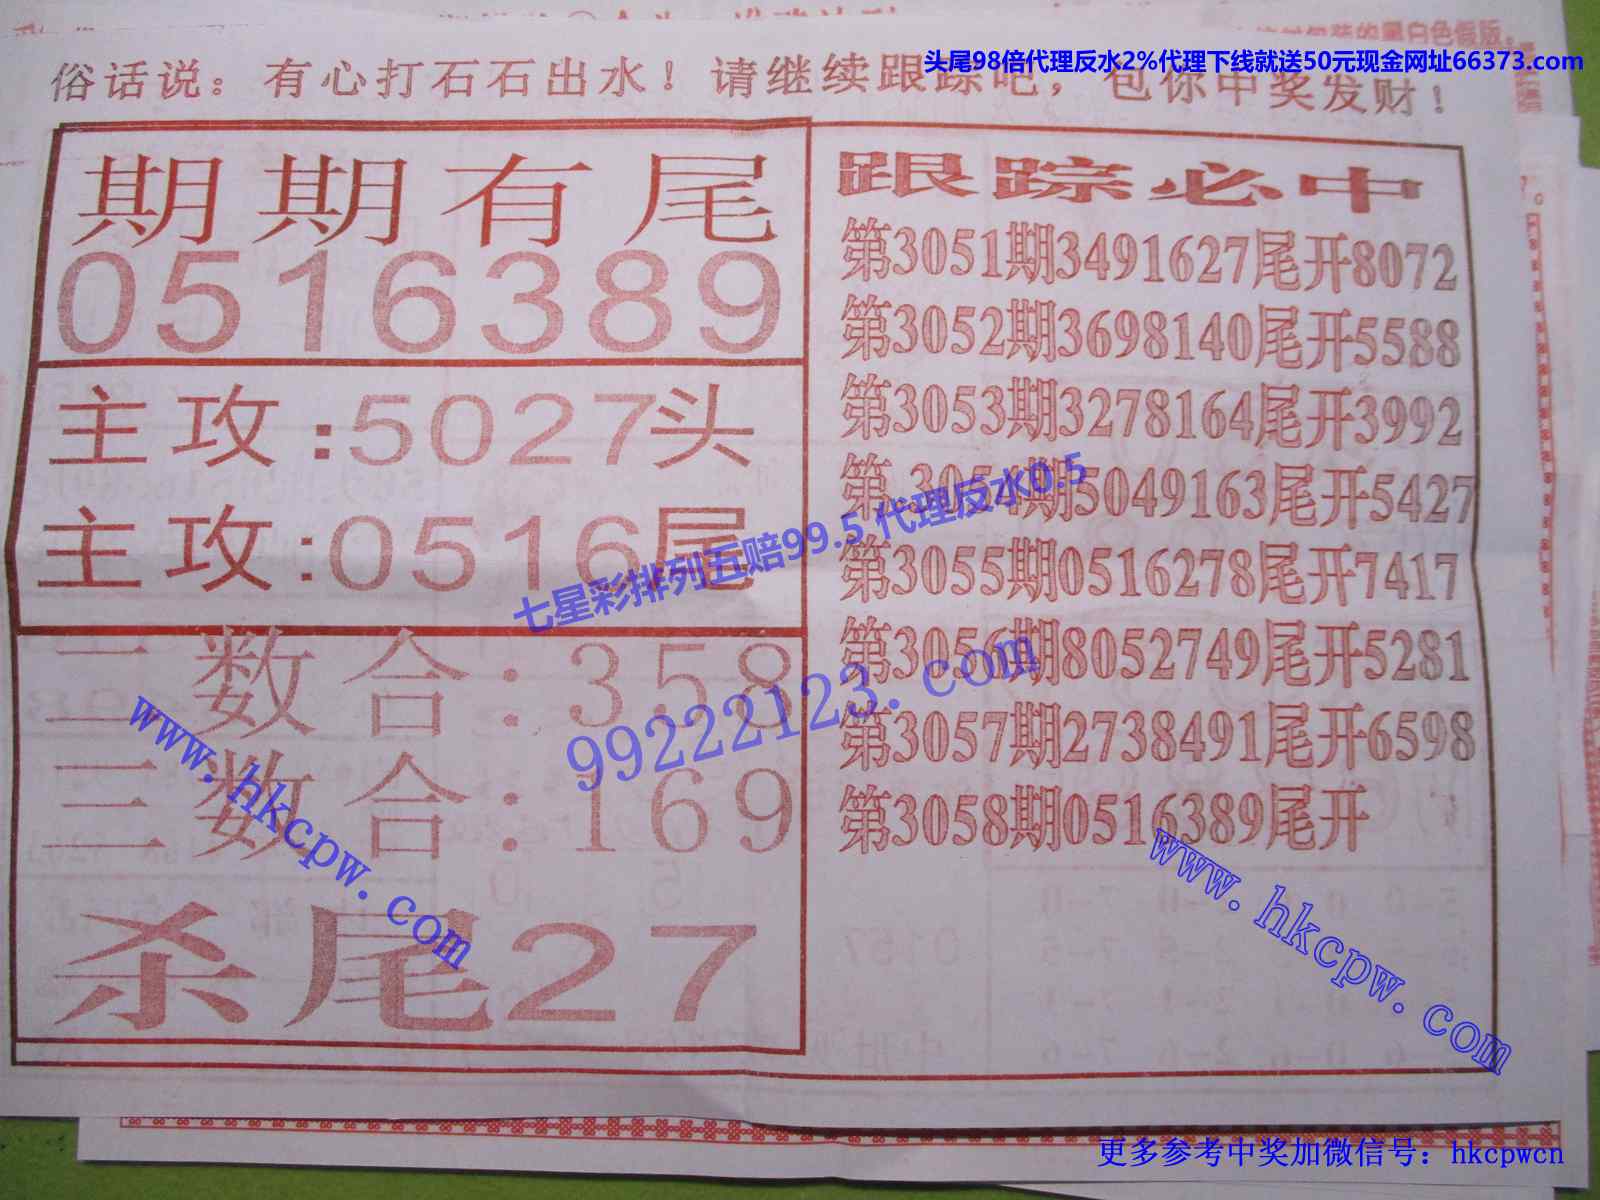 头尾98倍代理反水2%代理下线就送50元现金网址66373.com
俗话说：有心打石石出水！请继续跟踪吧，包你中奖发财！
期期有尾
0516389
主攻:5027头
主攻:0516尾
二数合:358
三数合:169
杀尾27
跟踪必中
第3051期3491627尾开8072
第3052期3698140尾开5588
第3053期3278164尾开3992
第3054期5049163尾开5427
第3055期0516278尾开7417
第3056期8052749尾开5281
第3057期2738491尾开6598
第3058期0516389尾开
七星彩排列五赔99.5 代理反水0.5
99222123.com
www.hkcpw.com
www.hkcpw.com
更多参考中奖加微信号：hkcpwcn